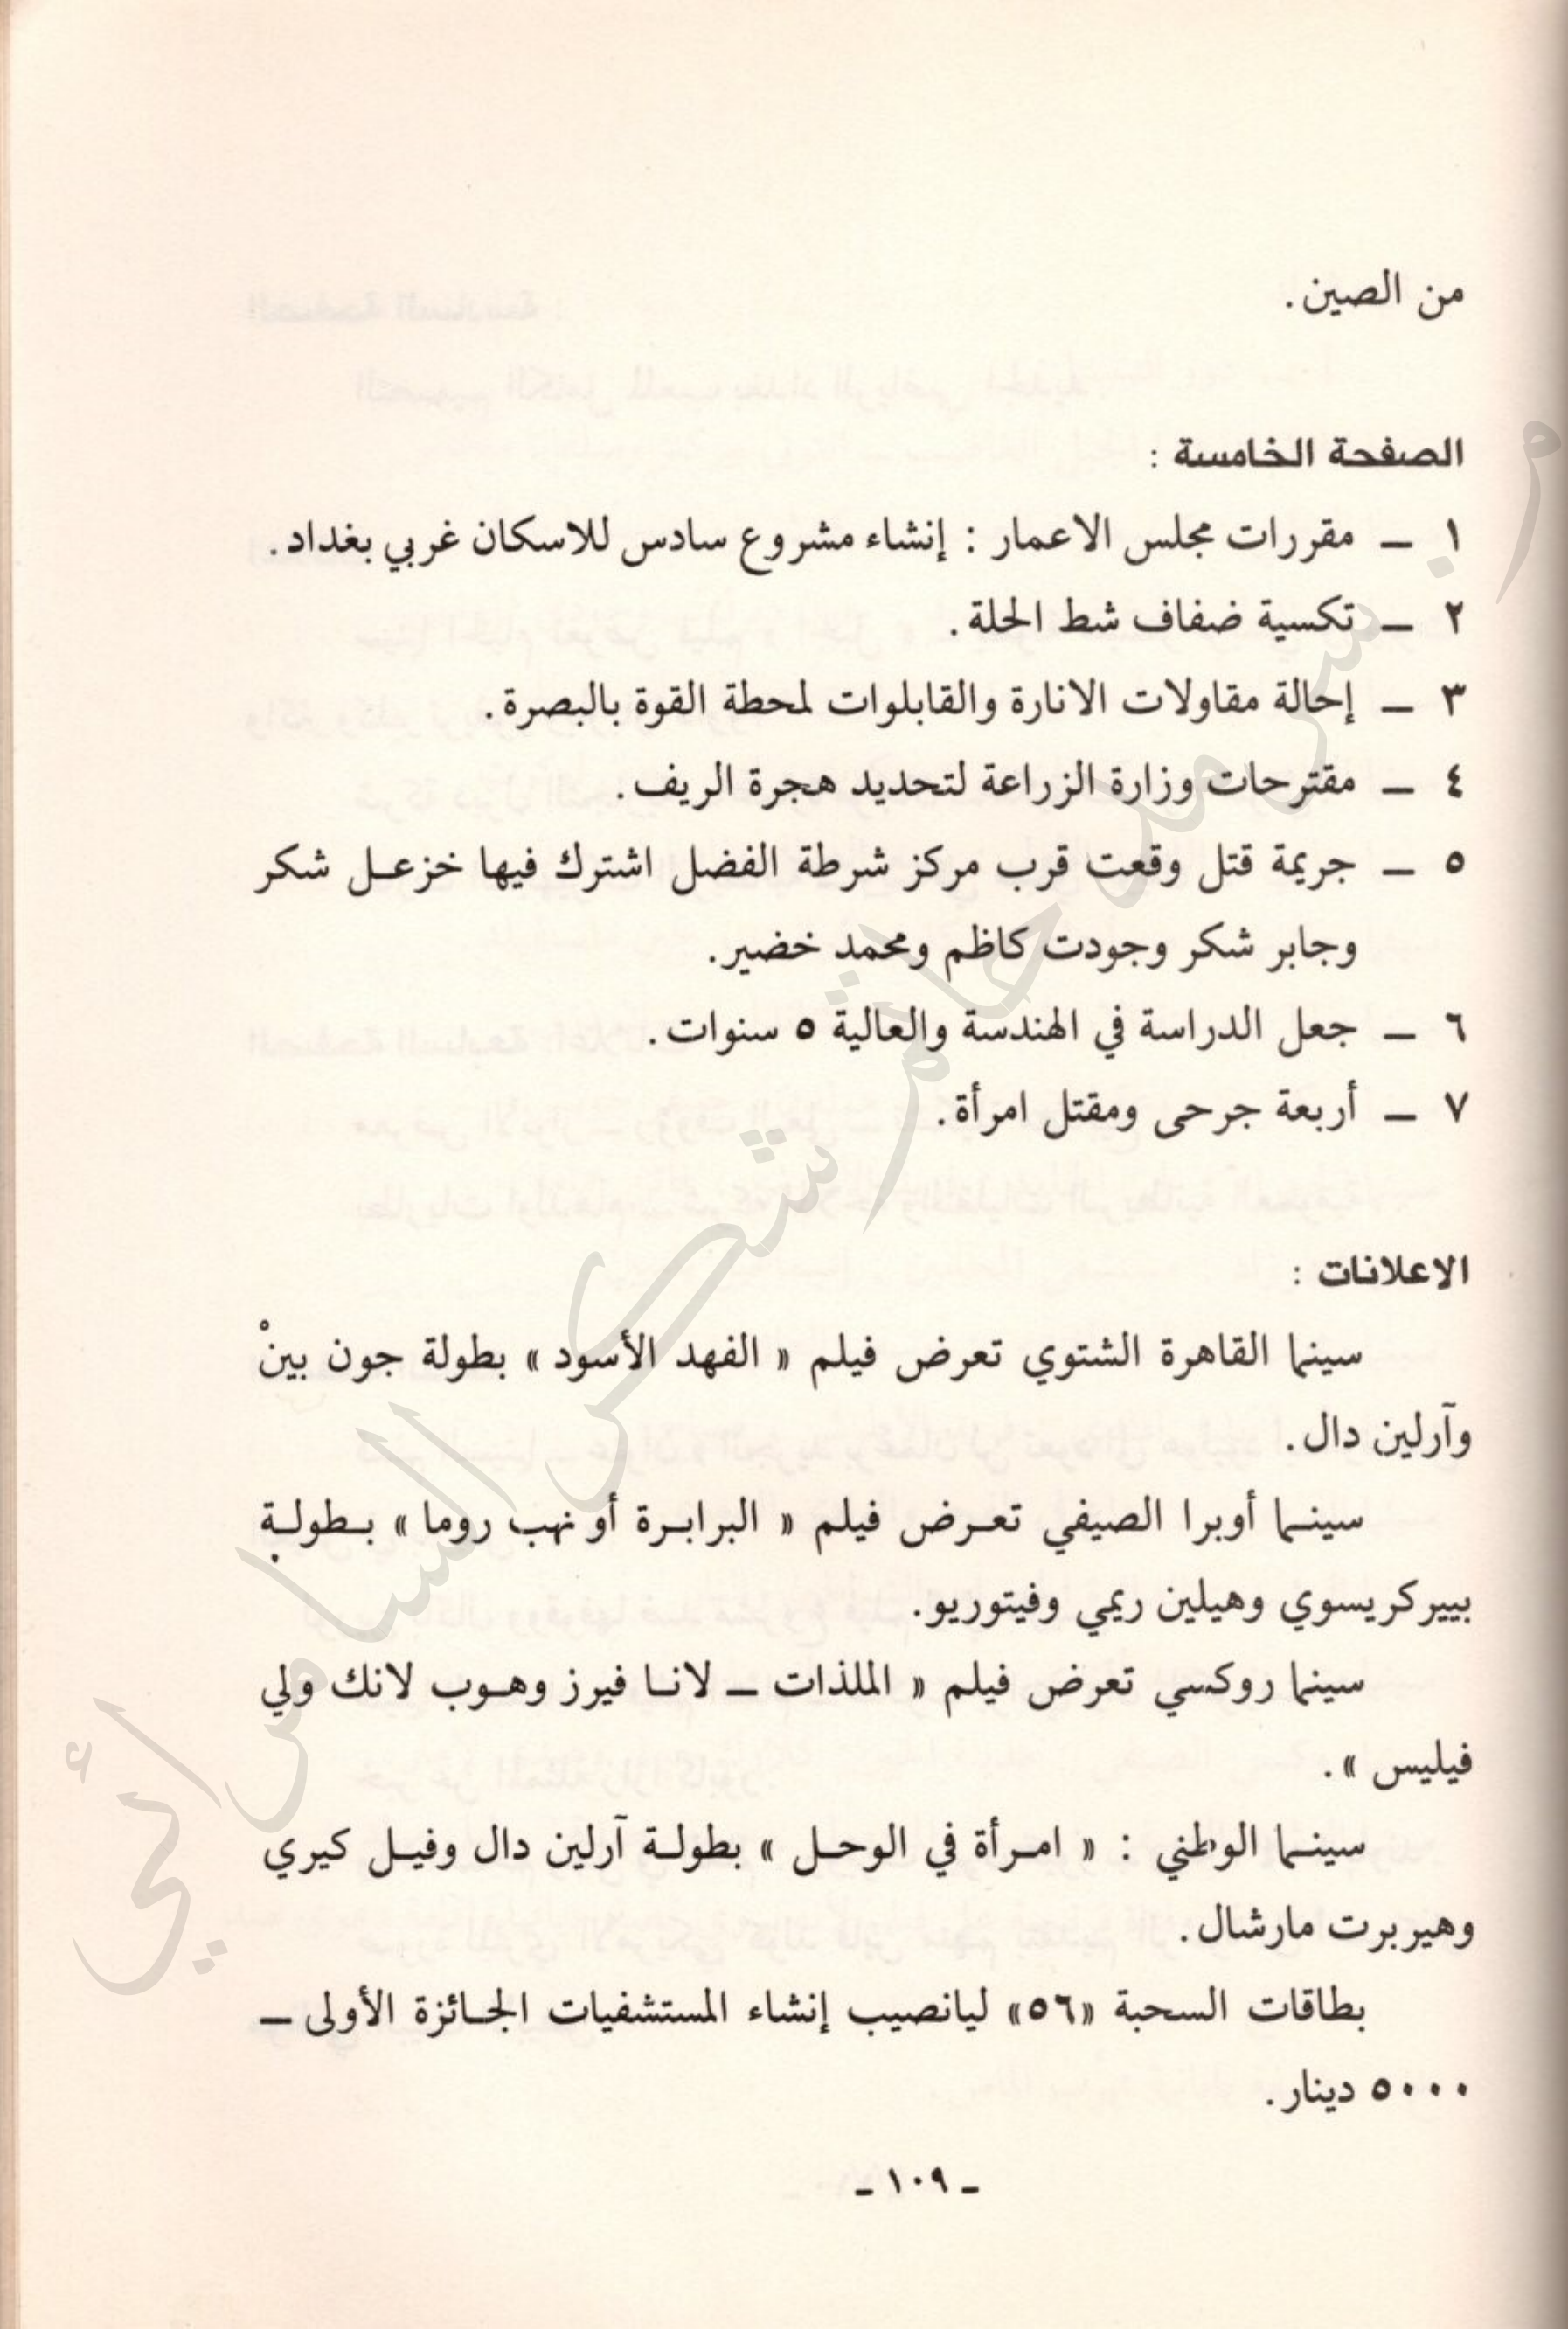 من الصين.
الصفحة الخامسة :
١ ـ مقررات مجلس الاعمار : إنشاء مشروع سادس للاسكان غربي بغداد.
٢ ـ تكسية ضفاف شط الحلة.
٣ ـ إحالة مقاولات الانارة والقابلوات لمحطة القوة بالبصرة.
٤ ـ مقترحات وزارة الزراعة لتحديد هجرة الريف.
٥ ـ جريمة قتل وقعت قرب مركز شرطة الفضل اشترك فيها خزعل شكر
وجابر شكر وجودت كاظم ومحمد خضير.
٦ ـ جعل الدراسة في الهندسة والعالية ٥ سنوات.
٧ ـ أربعة جرحى ومقتل امرأة.
الاعلانات :
سينما القاهرة الشتوي تعرض فيلم « الفهد الأسود » بطولة جون بينْ
وآرلين دال.
سينما أوبرا الصيفي تعرض فيلم « البرابرة أو نهب روما » بطولة
بييركريسوي وهيلين ريمي وفيتوريو.
سينما روكسي تعرض فيلم « الملذات ـ لانا فيرز وهوب لانك ولي
فيليس ».
سينما الوطني : « امرأة في الوحل » بطولة آرلين دال وفيل كيري
وهيربرت مارشال.
بطاقات السحبة «٥٦» ليانصيب إنشاء المستشفيات الجائزة الأولى ـ
٥٠٠٠ دينار.
ـ ١٠٩ ـ
م. سرمد حاتم شكر السامرائي